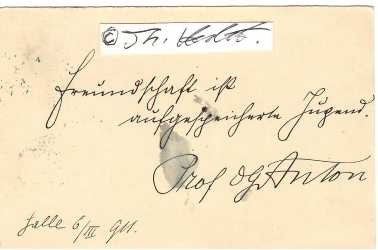 Freundschaft ist
aufgespeicherte Jugend.
Prof Dr G Anton
Halle 6/III 911.